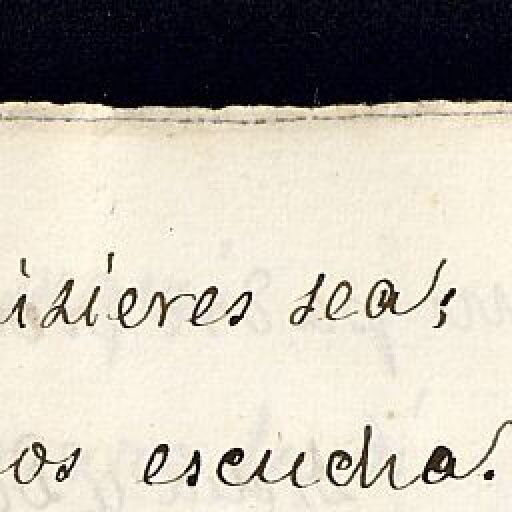 isieres sea;
os escucha.